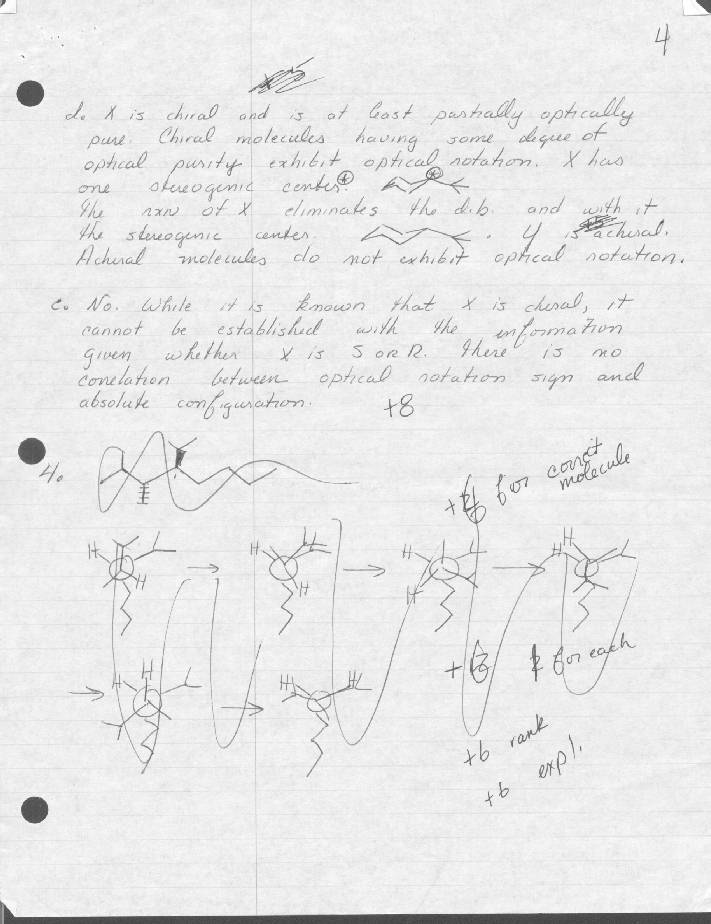 4
d. X is chiral and is at least partially optically
pure. Chiral molecules having some degree of
optical purity exhibit optical rotation. X has
one stereogenic center.
the rxn of X eliminates the d.b. and with it
the stereogenic center. Y is achiral.
Achiral molecules do not exhibit optical rotation.
e. No. While it is known that X is chiral, it
cannot be established with the information
given whether X is S or R. There is no
correlation between optical rotation sign and
absolute configuration.
+8
4.
for correct
molecule
H H
H H
H H
H H
H H
H H
for each
+6 rank
+6 expl.